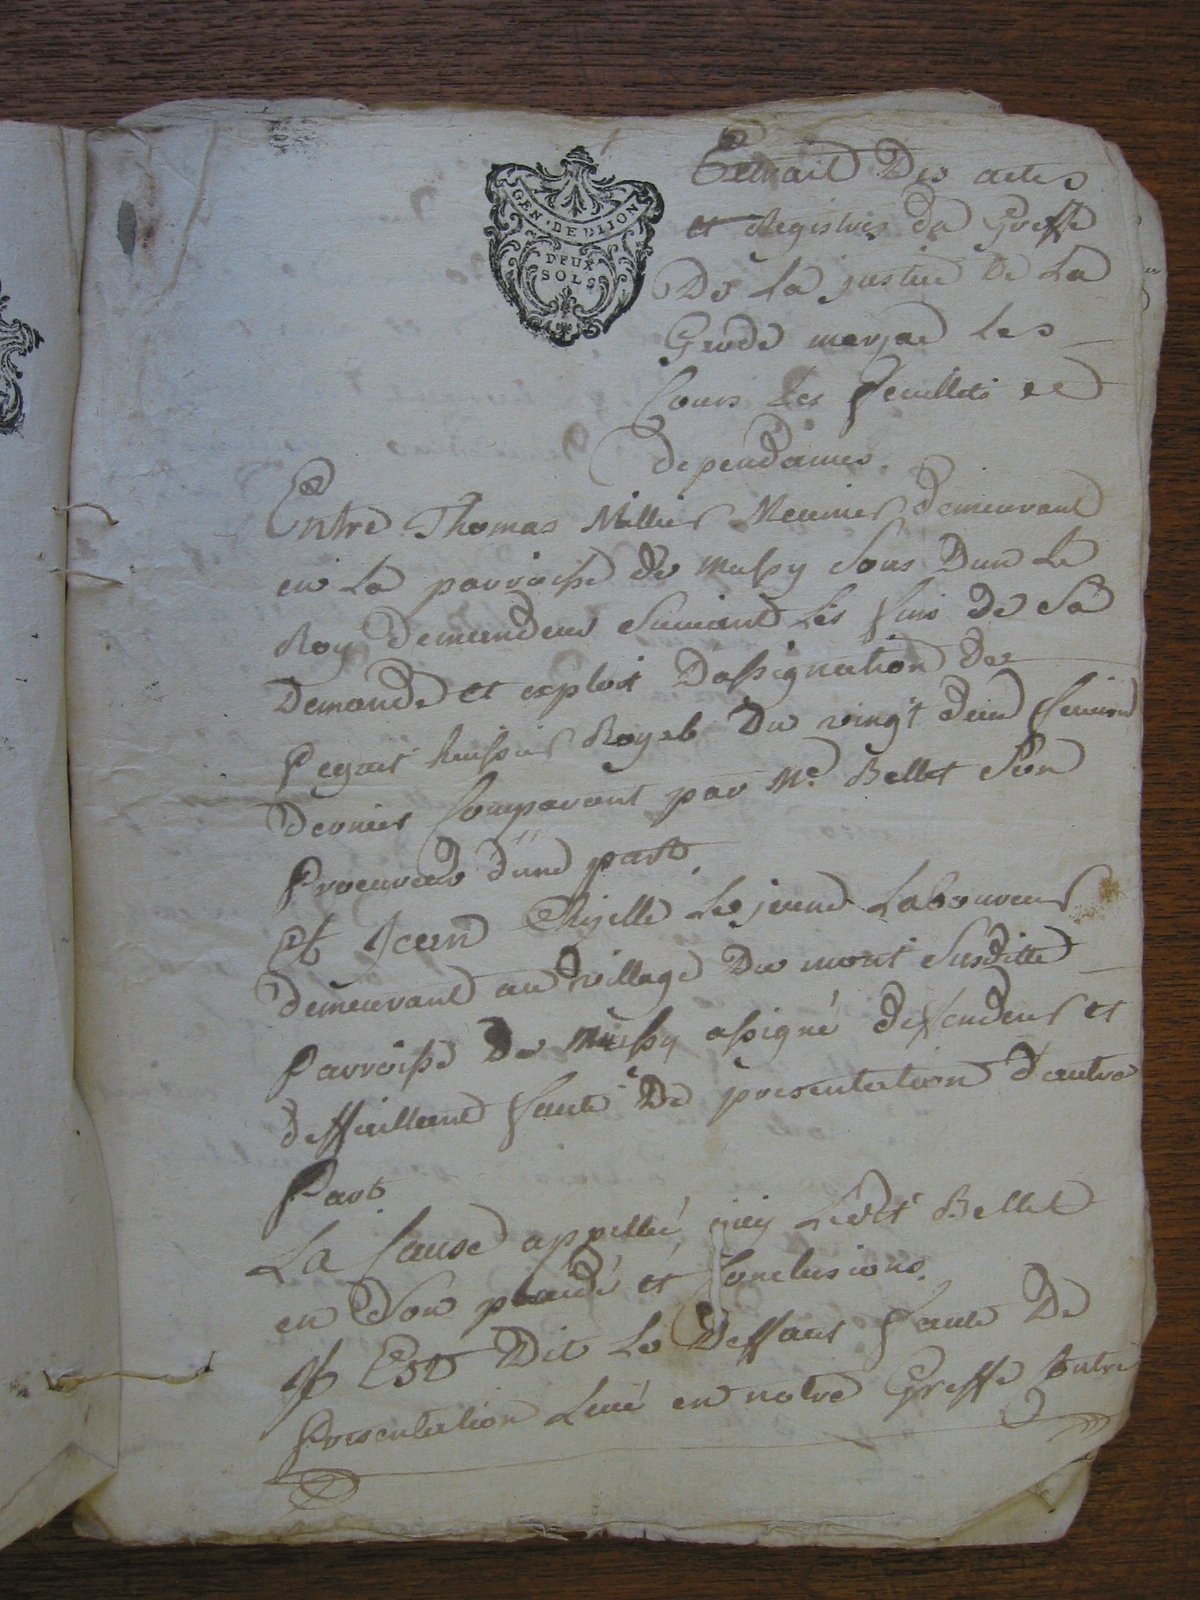 GEN. DE DIION
DEUX
SOLS
Extrait Des actes
et Registres du Greffe
De La justice De La
Les
Cours Les feuillets et
dependances.
Entre Thomas Millier Meunier demeurant
en La parroisse de mussy sous Dun Le
Roy demandeur suivant Les fins de sa
Demande et exploit Dassignation de
huissier Royal Du vingt deux fevrier
dernier Comparant par Me. Bellet son
Procureur d'une part
Et Jean Le jeune Laboureur
demeurant au village Du mont susditte
Parroisse De Mussy assigné deffendeur et
deffaillant faute De presentation d'autre
Part
La Cause appellée, ouy Ledt Bellet
en son plaidé et Conclusions.
Il Est Dit Le Deffaut faute De
Presentation Levé en notre Greffe Contre